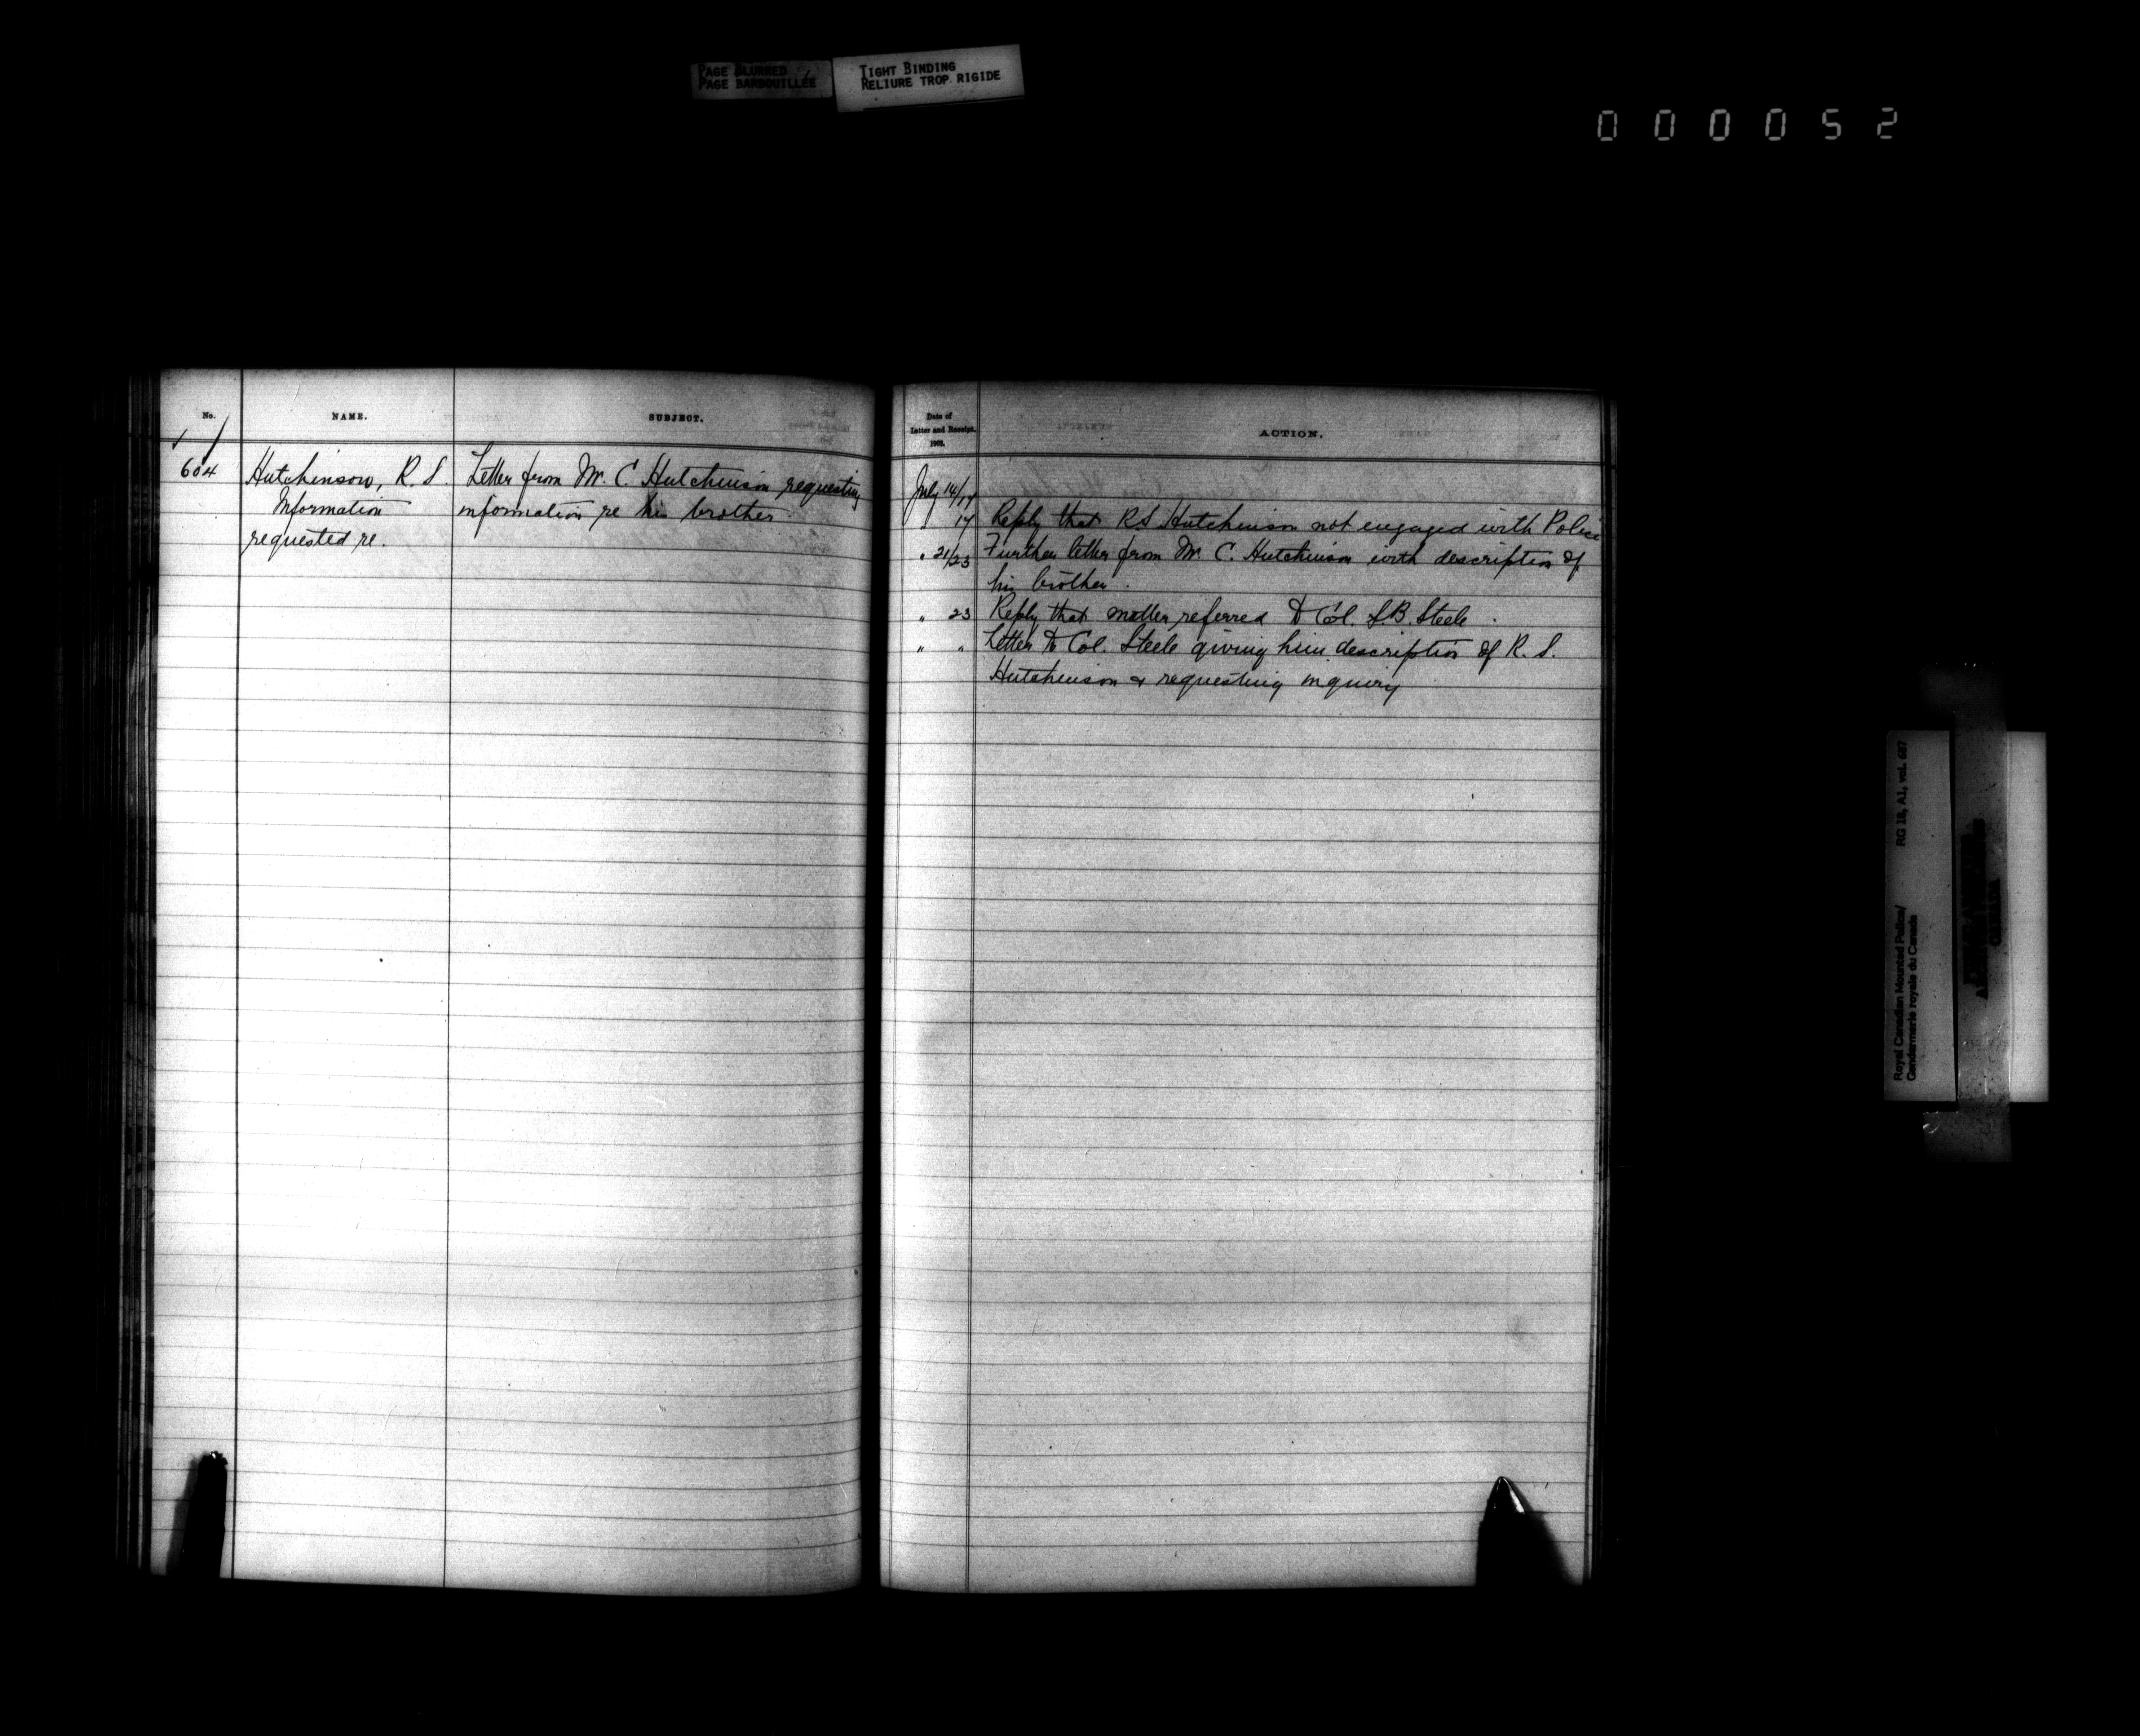 PAGE BLURRED
PAGE BARBOUILLÉE
TIGHT BINDING
RELIURE TROP RIGIDE
000052
No.
NAME.
SUBJECT.
604
Hutchinson, R. S.
Information
requested re.
Letter from Mr. C. Hutchinson requesting
information re his brother
Date of
Letter and Receipt.
1902.
ACTION.
July 14/17
" 17 Reply that R.S. Hutchinson not engaged with Police
" 21/23 Further letter from Mr. C. Hutchinson with description of
his brother.
" 23 Reply that matter referred to Col. S.B. Steele.
" " Letter to Col. Steele giving him description of R. S.
Hutchinson & requesting inquiry
Royal Canadian Mounted Police/ RG 18, A1, vol. 687
Gendarmerie royale du Canada